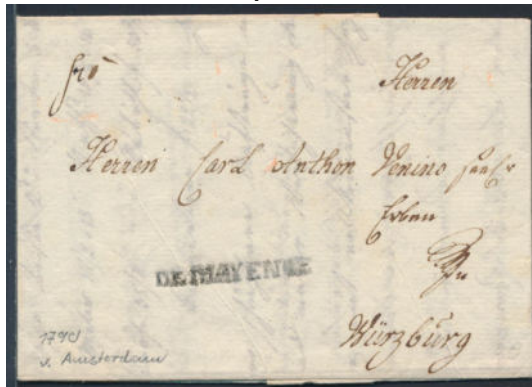 Herren
Herren Carl Anthon Venino
Erben
Zu
Würzburg
DE MAYENCE
1790
v. Amsterdam